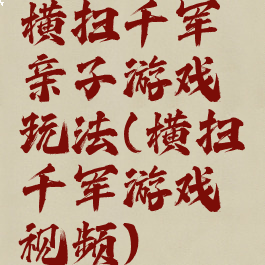 横扫千军
亲子游戏
玩法(横扫
千军游戏
视频)